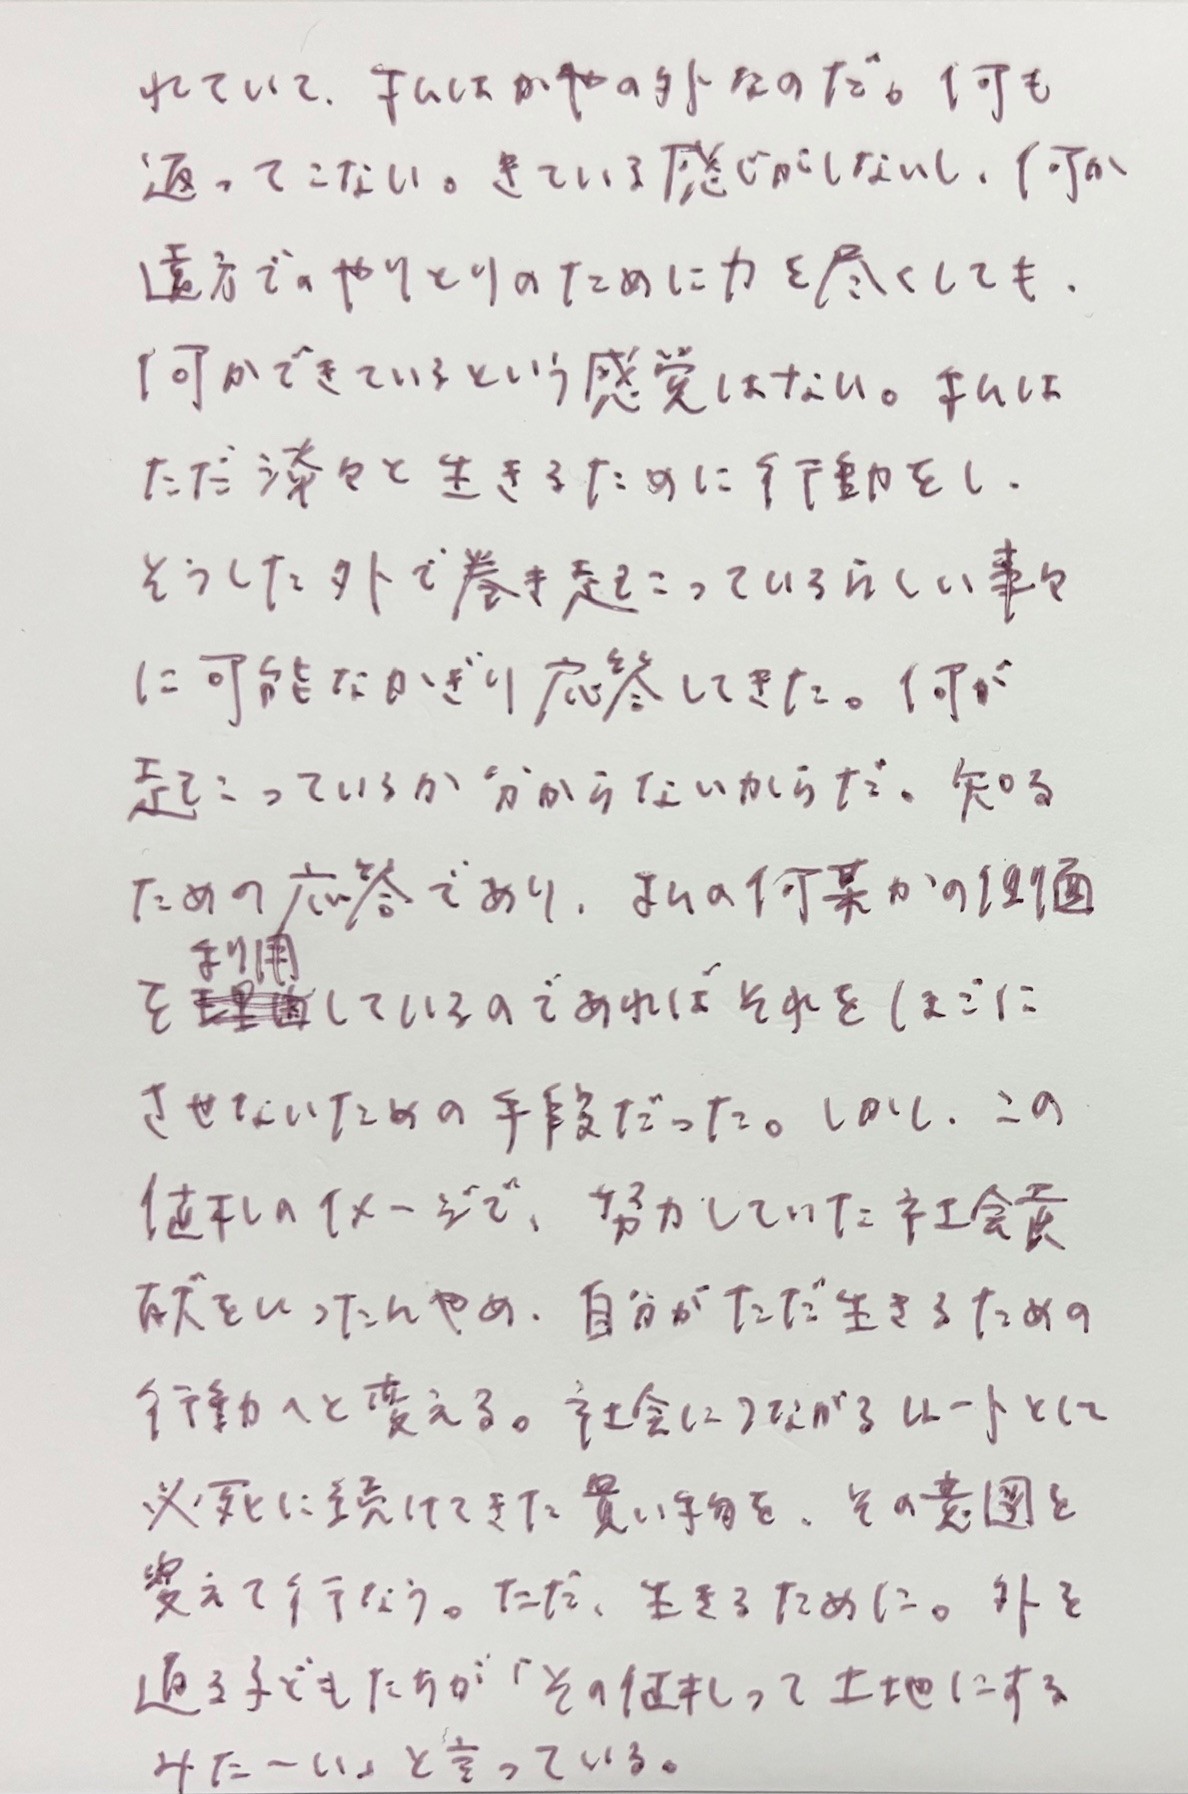 れていて、私はかやの外なのだ。何も
返ってこない。きている感じがしないし、何か
遠方でのやりとりのために力を尽くしても、
何かできているという感覚はない。私は
ただ淡々と生きるために行動をし、
そうした外で巻き起こっているらしい事々
に可能なかぎり応答してきた。何が
起こっているか分からないからだ。知る
ための応答であり、私の何某かの価値
を利用しているのであればそれをほごに
させないための手段だった。しかし、この
値札のイメージで、努力していた社会貢
献をいったんやめ、自分がただ生きるための
行動へと変える。社会につながるルートとして
必死に続けてきた買い物を、その意図を
変えて行なう。ただ、生きるために。外を
通る子どもたちが「その値札って土地にする
みたーい」と言っている。